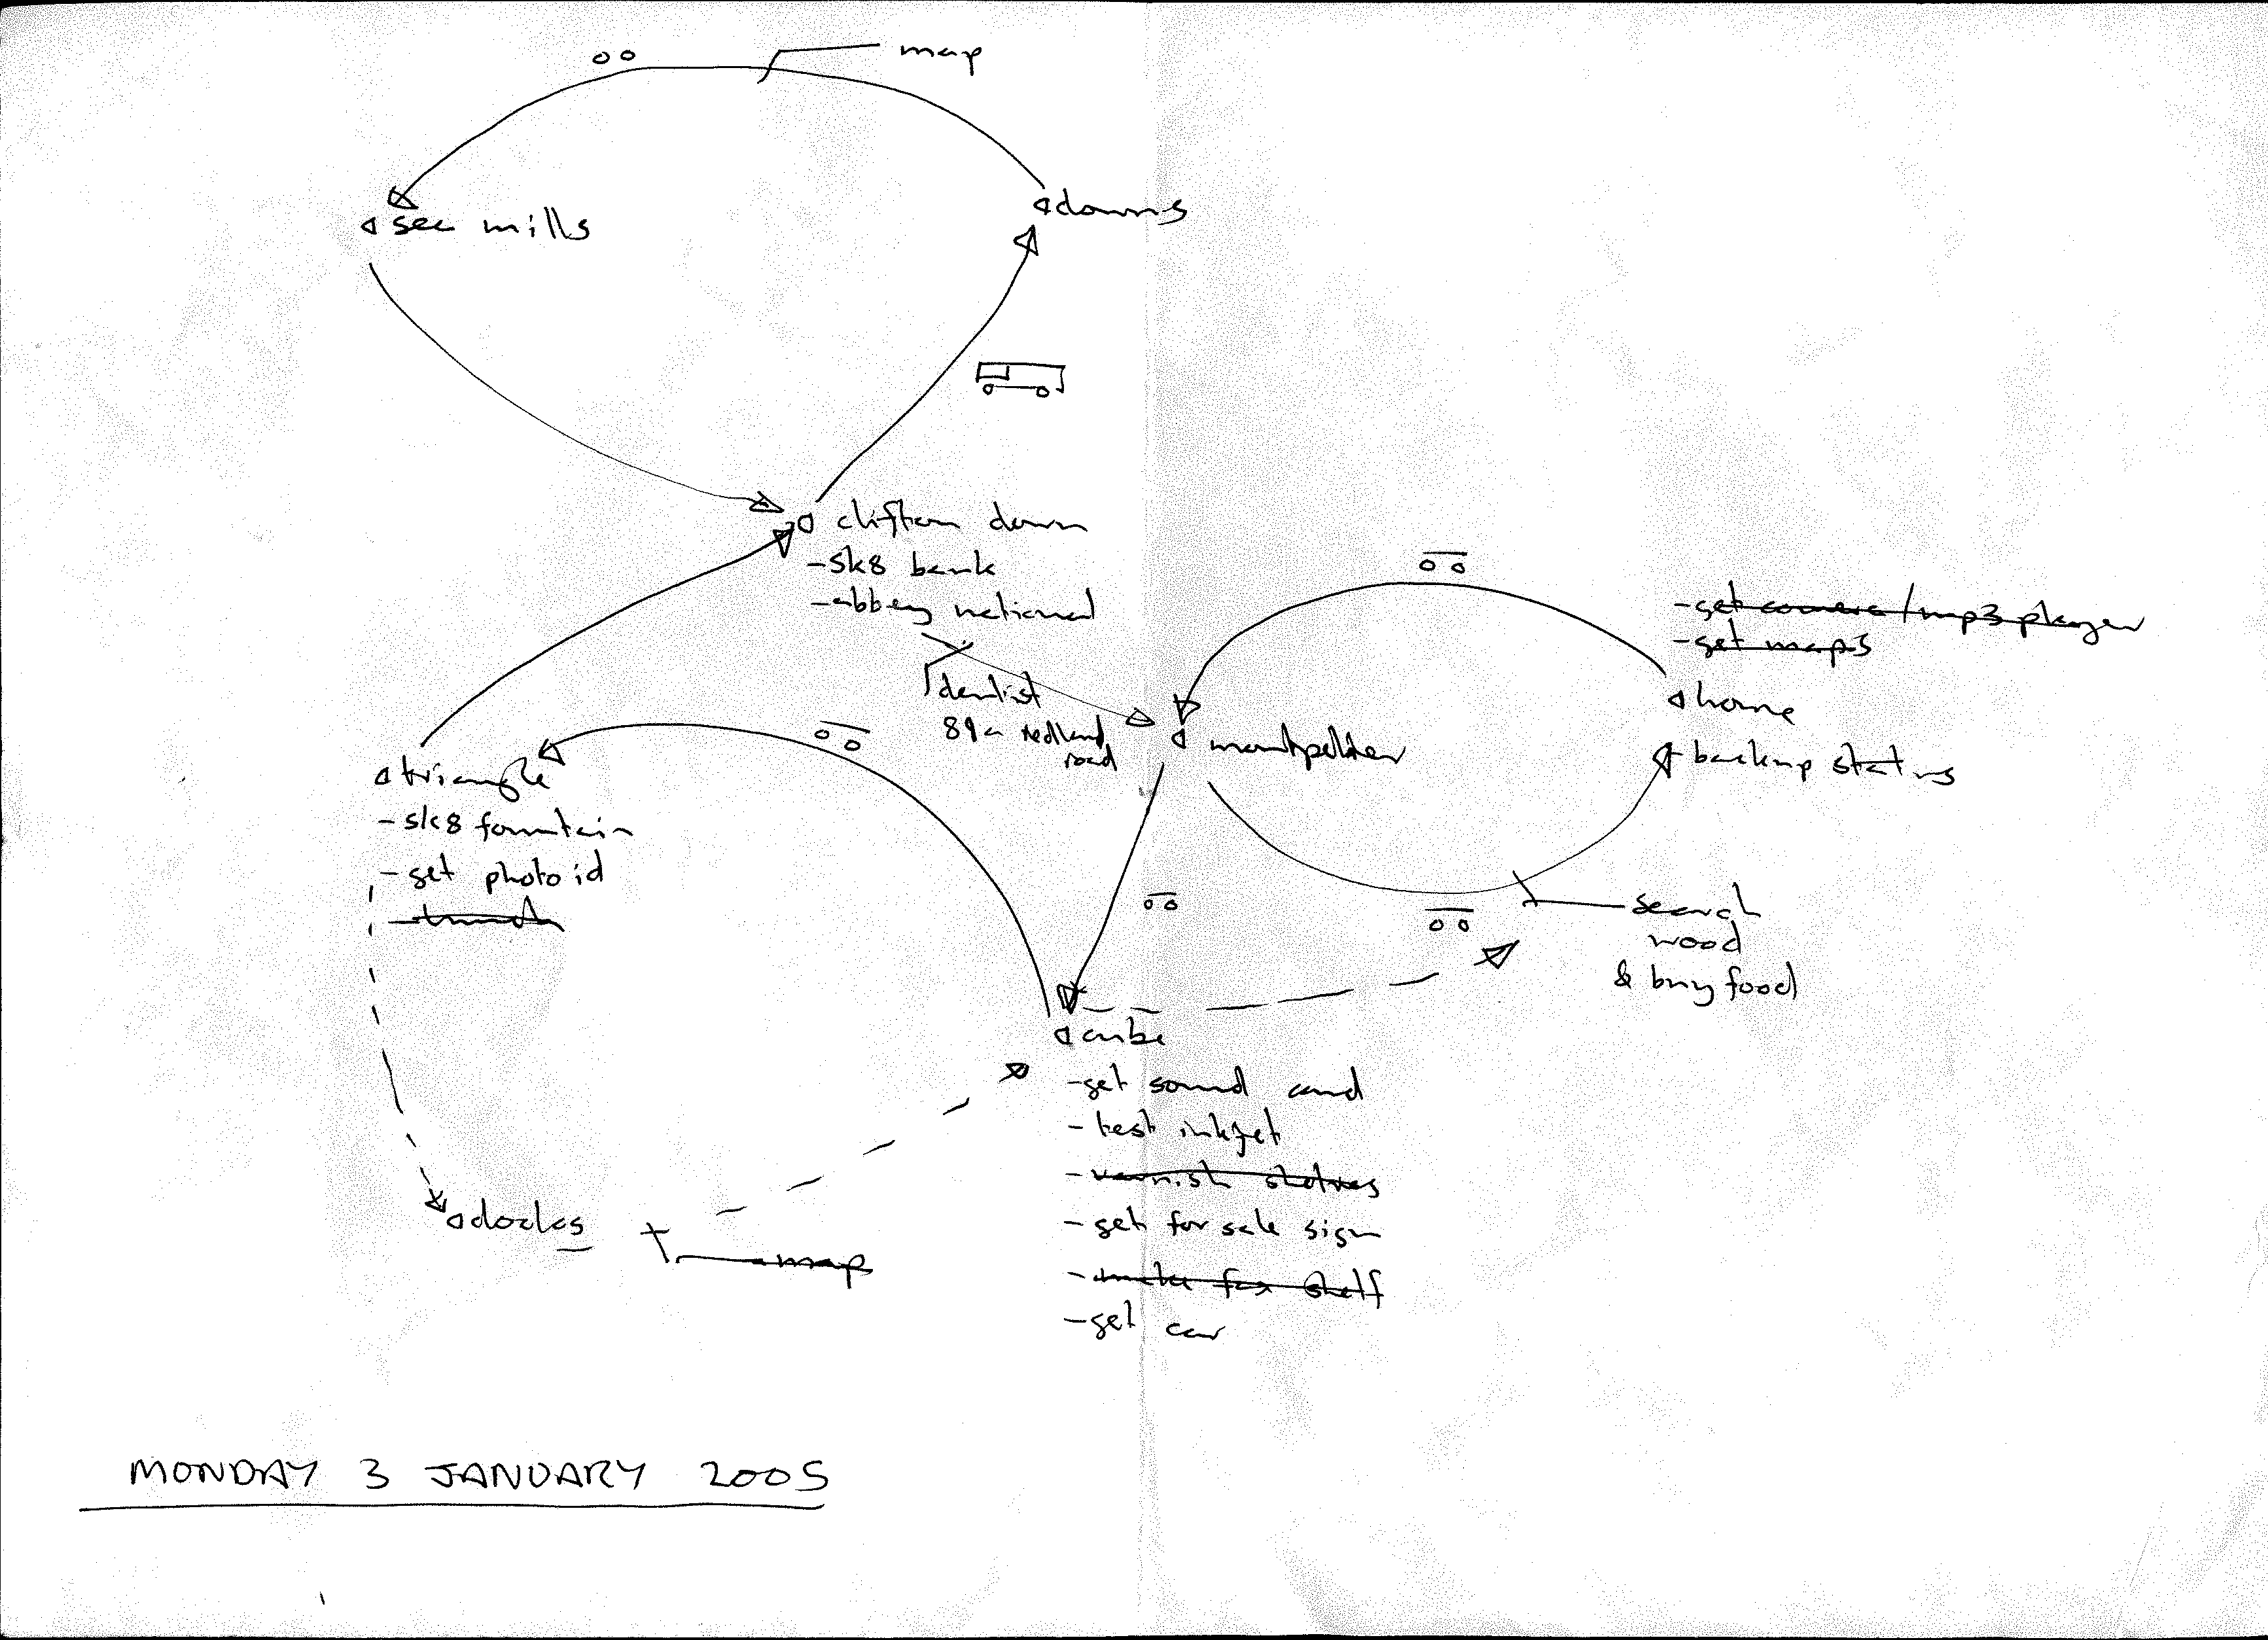 map
sea mills
downs
clifton down
-sk8 bank
-abbey national
dentist
89a redland
road
-get camera/mp3 player
-get maps
home
backup status
montpelier
triangle
-sk8 fountain
-get photo id
search
wood
& buy food
cube
-get sound card
-test inkjet
-varnish shelves
-get for sale sign
-make fax shelf
-get car
docks
map
MONDAY 3 JANUARY 2005